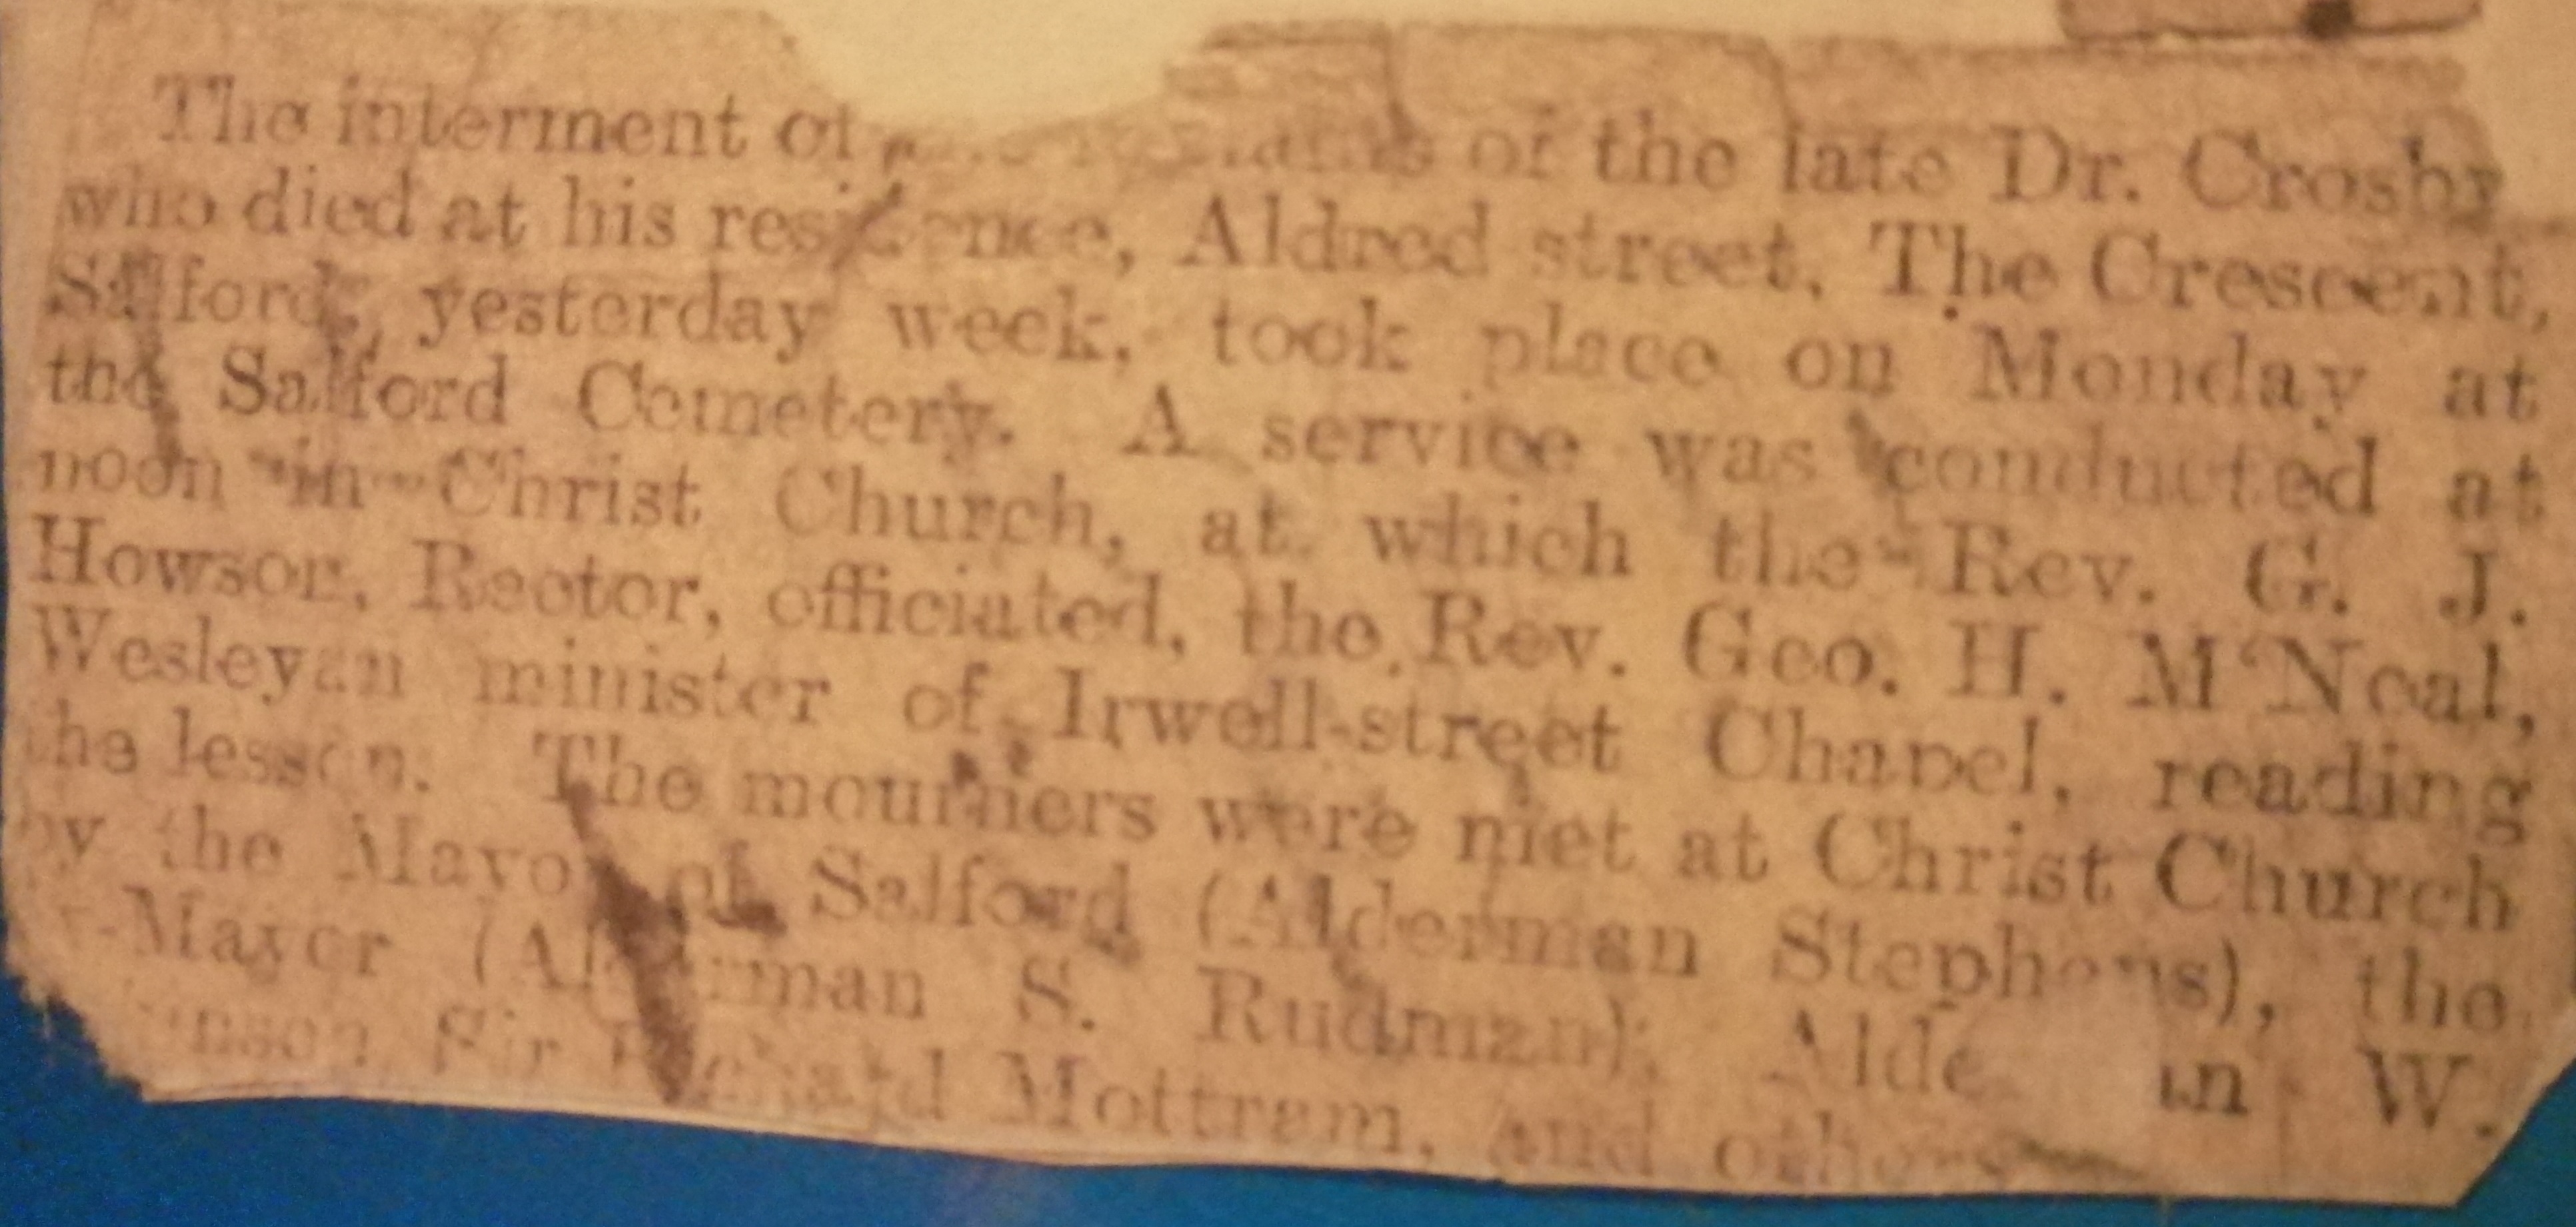 The interment of remains of the late Dr. Crosby
who died at his residence, Aldred street, The Crescent,
Salford, yesterday week, took place on Monday at
the Salford Cemetery. A service was conducted at
noon in Christ Church, at which the Rev. G. J.
Howson, Rector, officiated, the Rev. Geo. H. M'Neal,
Wesleyan minister of Irwell-street Chapel, reading
the lesson. The mourners were met at Christ Church
by the Mayor of Salford (Alderman Stephens), the
-Mayor (Alderman S. Rudman), W.
Sir Richard Mottram, and others